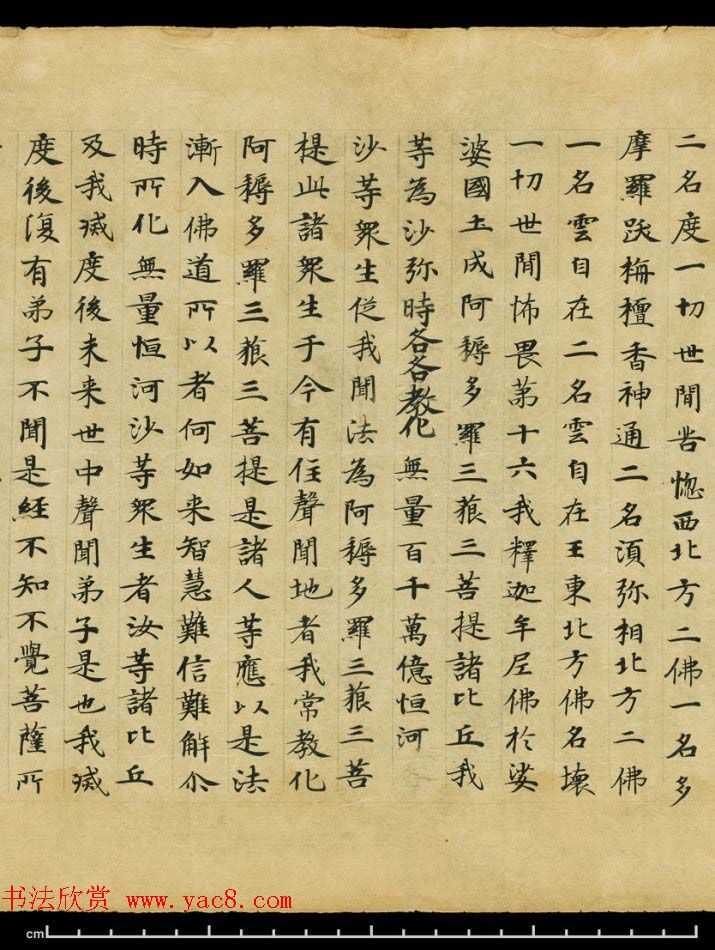 二名度一切世間苦惱西北方二佛一名多
摩羅跋栴檀香神通二名湏弥相北方二佛
一名雲自在二名雲自在王東北方佛名壞
一切世間怖畏苐十六我釋迦牟尼佛於娑
婆國土成阿耨多羅三藐三菩提諸比丘我
等為沙弥時各各教化無量百千萬億恒河
沙等衆生従我聞法為阿耨多羅三藐三菩
提此諸衆生于今有住聲聞地者我常教化
阿耨多羅三藐三菩提是諸人等應以是法
漸入佛道所以者何如来智慧難信難解尒
時所化無量恒河沙等衆生者汝等諸比丘
及我滅度後未来世中聲聞弟子是也我滅
度後復有弟子不聞是經不知不覺菩薩所
书法欣赏 www.yac8.com
cm